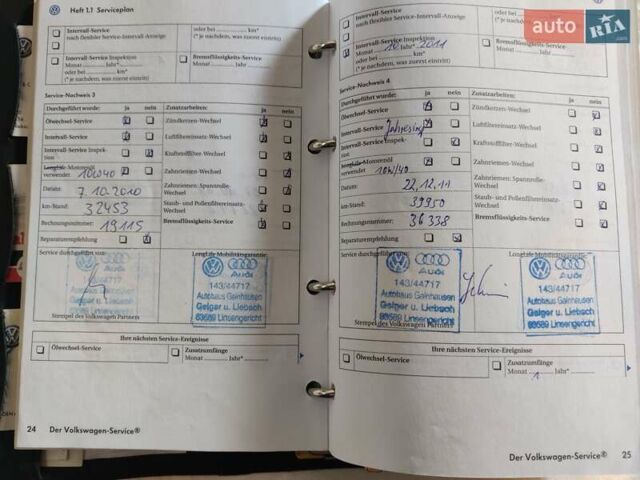 Heft 1.1 Serviceplan
Intervall-Service
(nach flexibler Service-Intervall-Anzeige)
oder bei km*
(* je nachdem, was zuerst eintritt)
Intervall-Service Inspektion
Monat Jahr*
oder bei km*
(* je nachdem, was zuerst eintritt)
Bremsflüssigkeits-Service
Monat Jahr*
Service-Nachweis 3
Durchgeführt wurde: ja nein Zusatzarbeiten: ja nein
Ölwechsel-Service Zündkerzen-Wechsel
Intervall-Service Luftfiltereinsatz-Wechsel
Intervall-Service Inspek-
tion Kraftstofffilter-Wechsel
Longlife-Motorenöl
verwendet 10W40 Zahnriemen-Wechsel
Datum: 7.10.2010 Zahnriemen: Spannrolle-
Wechsel
km-Stand: 32453 Staub- und Pollenfiltereinsatz-
Wechsel
Rechnungsnummer: 19115 Bremsflüssigkeits-Service
Reparaturempfehlung
Service durchgeführt von: Longlife Mobilitätsgarantie:
Audi
143/44717
Autohaus Gelnhausen
Geiger u. Liebsch
63589 Linsengericht
Audi
143/44717
Autohaus Gelnhausen
Geiger u. Liebsch
63589 Linsengericht
Stempel des Volkswagen Partners
Ihre nächsten Service-Ereignisse
Ölwechsel-Service
Zusatzumfänge
Monat Jahr*
24 Der Volkswagen-Service®
Intervall-Service
(nach flexibler Service-Intervall-Anzeige)
oder bei km*
(* je nachdem, was zuerst eintritt)
Intervall-Service Inspektion
Monat 10 Jahr* 2011
oder bei km*
(* je nachdem, was zuerst eintritt)
oder bei km*
(* je nachdem, was zuerst eintritt)
Bremsflüssigkeits-Service
Monat Jahr*
Service-Nachweis 4
Durchgeführt wurde: ja nein Zusatzarbeiten: ja nein
Ölwechsel-Service Zündkerzen-Wechsel
Intervall-Service Luftfiltereinsatz-Wechsel
Intervall-Service Inspek-
tion Kraftstofffilter-Wechsel
Longlife-Motorenöl
verwendet 10W/40 Zahnriemen-Wechsel
Datum: 22.12.11 Zahnriemen: Spannrolle-
Wechsel
km-Stand: 39950 Staub- und Pollenfiltereinsatz-
Wechsel
Rechnungsnummer: 36338 Bremsflüssigkeits-Service
Reparaturempfehlung
Service durchgeführt von: Longlife Mobilitätsgarantie:
Audi
143/44717
Autohaus Gelnhausen
Geiger u. Liebsch
63589 Linsengericht
Audi
143/44717
Autohaus Gelnhausen
Geiger u. Liebsch
63589 Linsengericht
Stempel des Volkswagen Partners
Ihre nächsten Service-Ereignisse
Ölwechsel-Service
Zusatzumfänge
Monat 1 Jahr*
Der Volkswagen-Service® 25
auto RIA.com